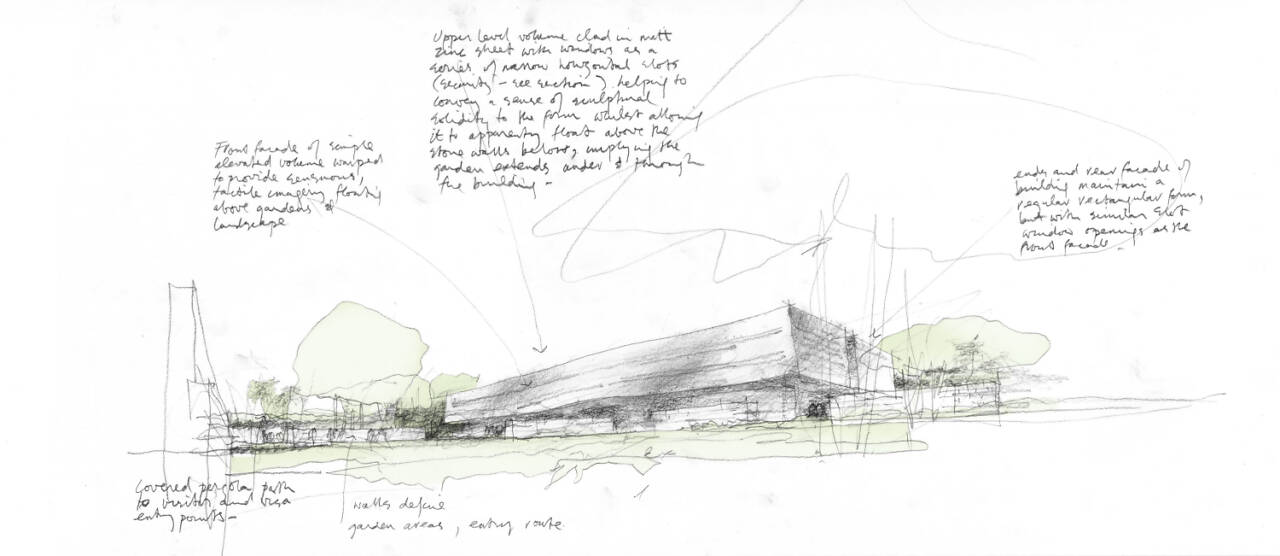 Upper level volume clad in matt
zinc sheet with windows as a
series of narrow horizontal slots
(security - see section) helping to
convey a sense of sculptural
solidity to the form whilst allowing
it to apparently float above the
stone walls below, implying the
garden extends under & through
the building -
Front facade of simple
elevated volume warped
to provide sensuous,
tactile imagery floating
above gardens &
landscape
ends and rear facade of
building maintain a
regular rectangular form,
but with similar slot
window openings as the
front facade -
covered pergola path
to visitor and visa
entry points -
walls define
garden areas, entry route.